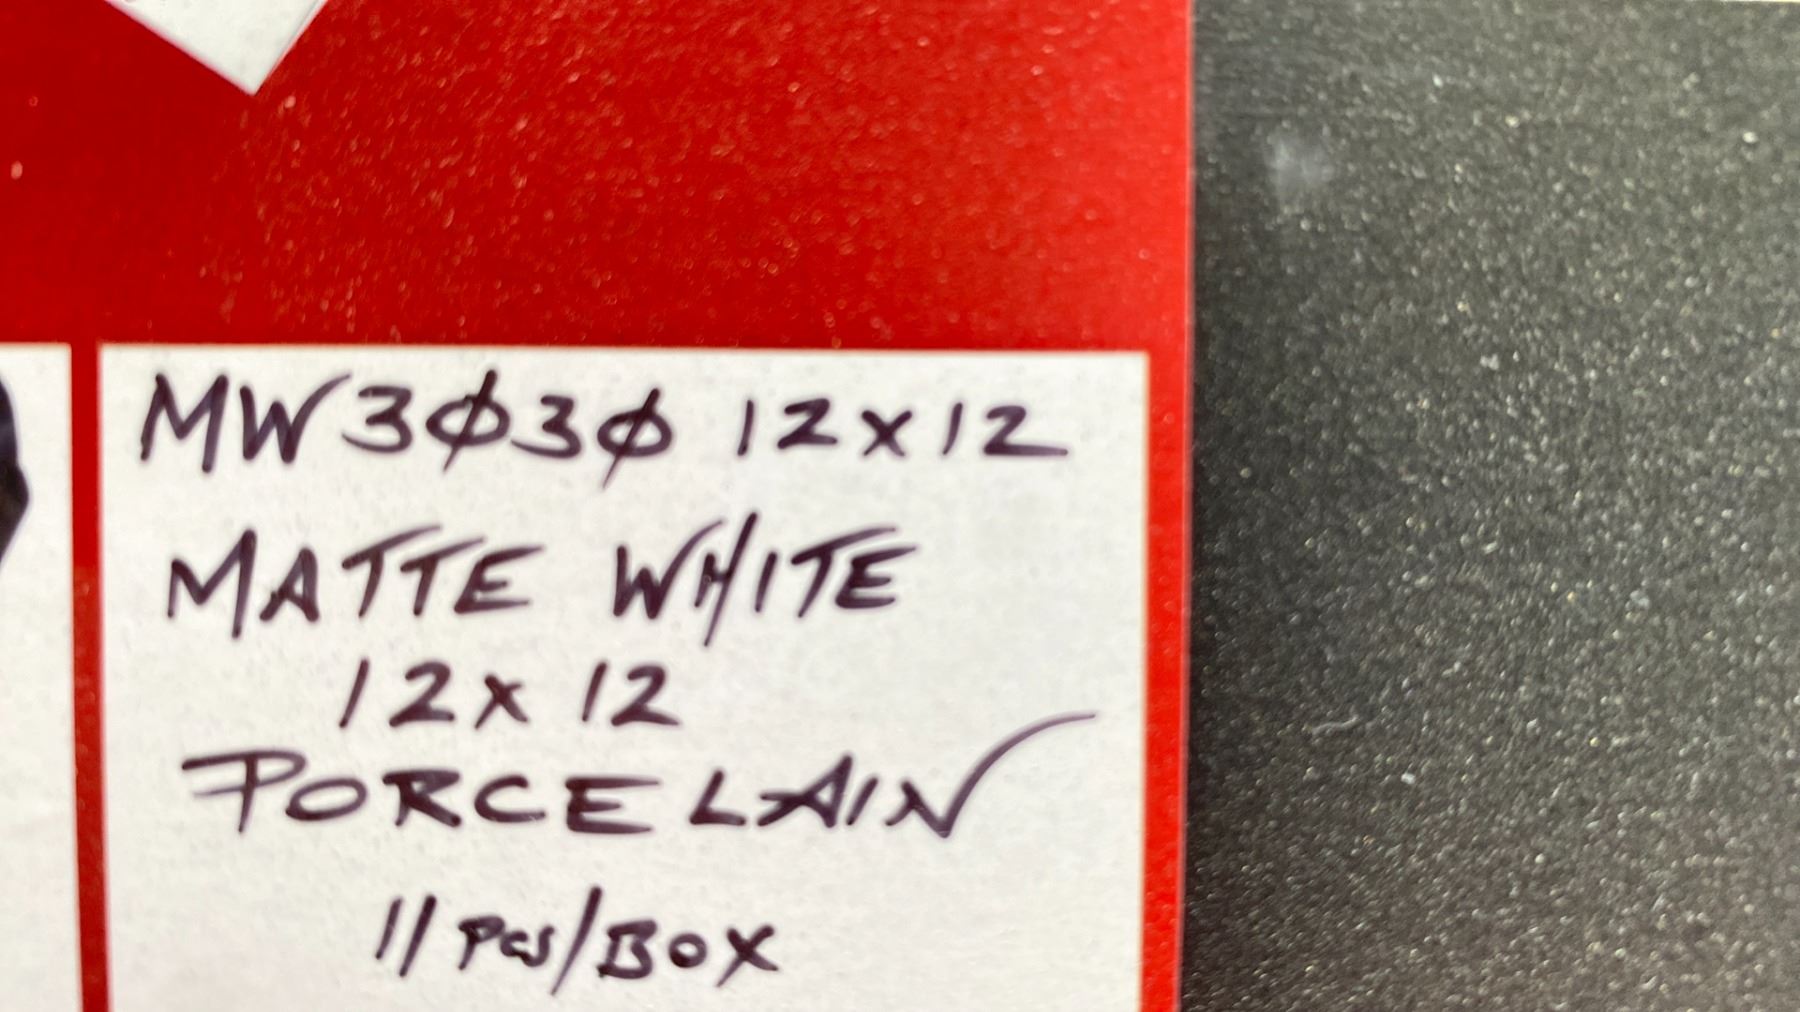 MW3Ø3Ø 12x12
MATTE WHITE
12x12
PORCELAIN
11 PCS/BOX